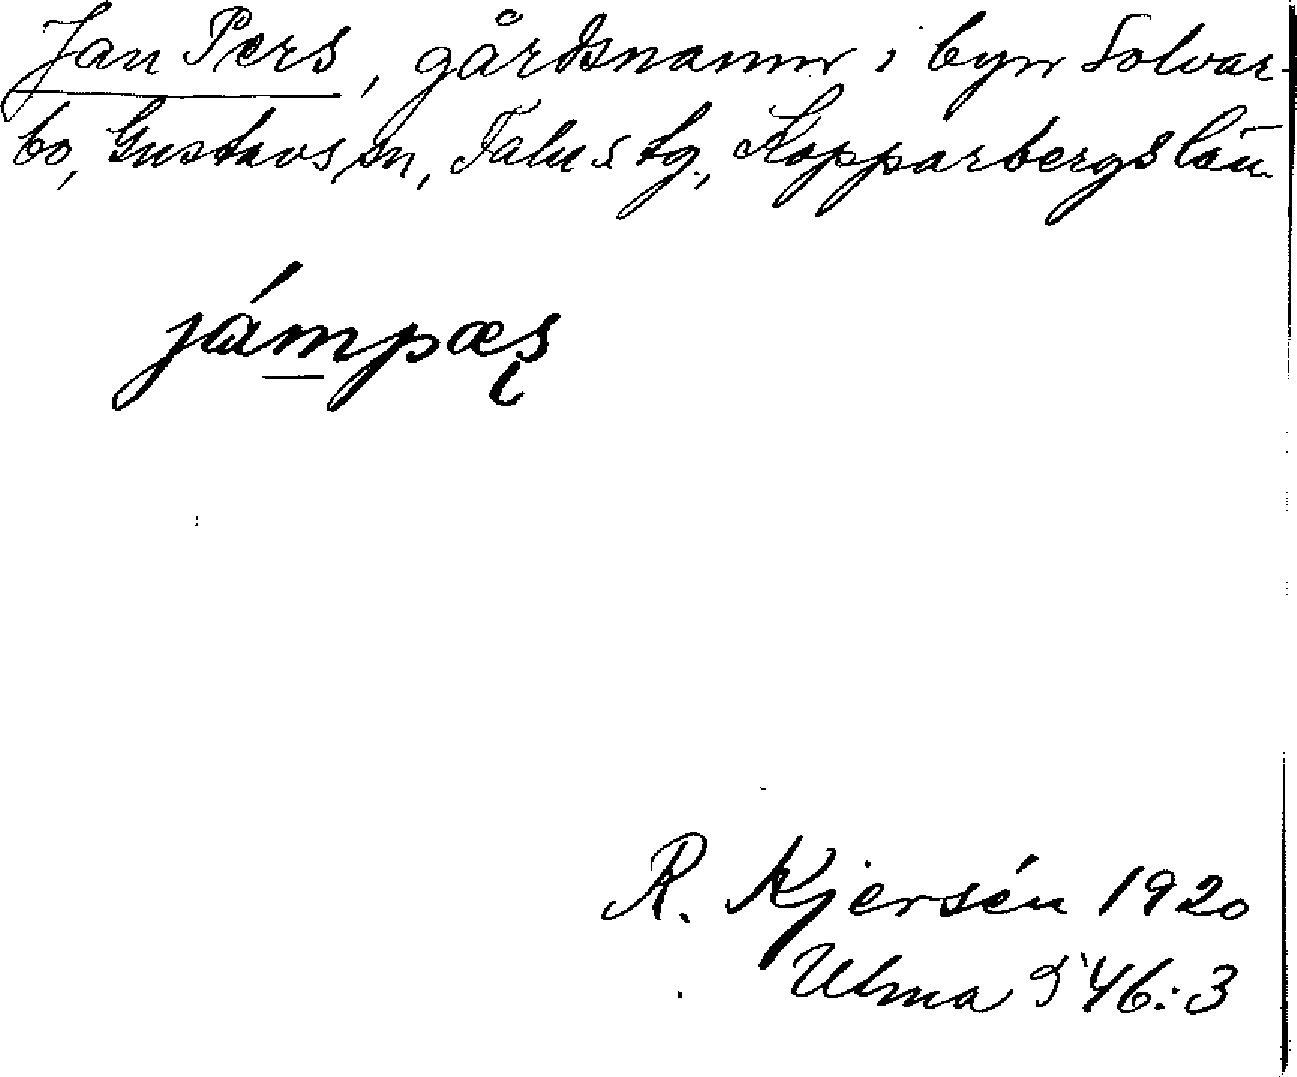 Jan Pers, gårdsnamn i byn Solvar-
bo, Gustavs sn, Falu s. tg., Kopparbergs län.
jámpæs̨
R. Kjersén 1920
Ulma 546:3